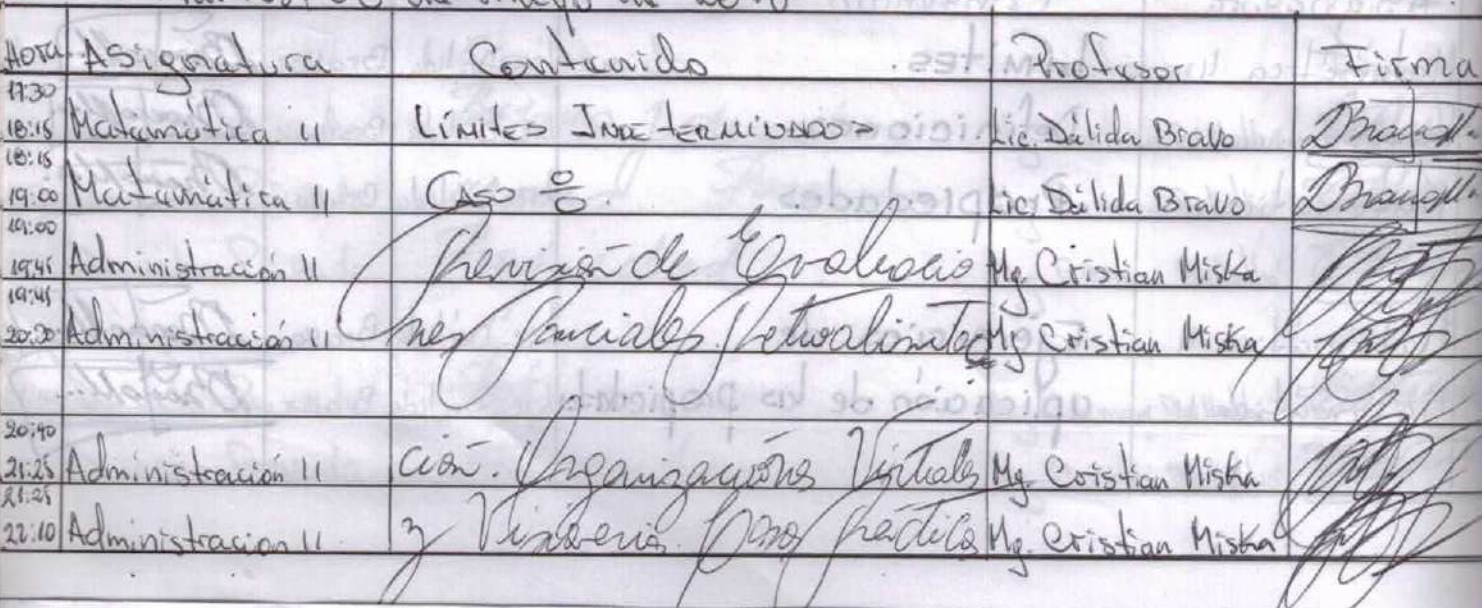 de Mayo de
Hora Asignatura Contenido Profesor Firma
17:30
18:15 Matemática II Límites Indeterminados Lic. Dálida Bravo
18:15
19:00 Matemática II Caso 0/0. Lic. Dálida Bravo
19:00
19:45 Administración II Revisión de Evaluacio Mg. Cristian Miska
19:45
20:30 Administración II nes Parciales. Retroalimenta Mg. Cristian Miska
20:40
21:25 Administración II ción. Organizaciones Virtuales Mg. Cristian Miska
21:25
22:10 Administración II y Mg. Cristian Miska